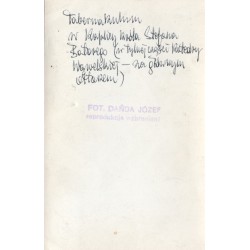 Tabernakulum
w Kaplicy króla Stefana
Batorego (w tylnej części Katedry
Wawelskiej – za głównym
ołtarzem)
FOT. DAŃDA JÓZEF